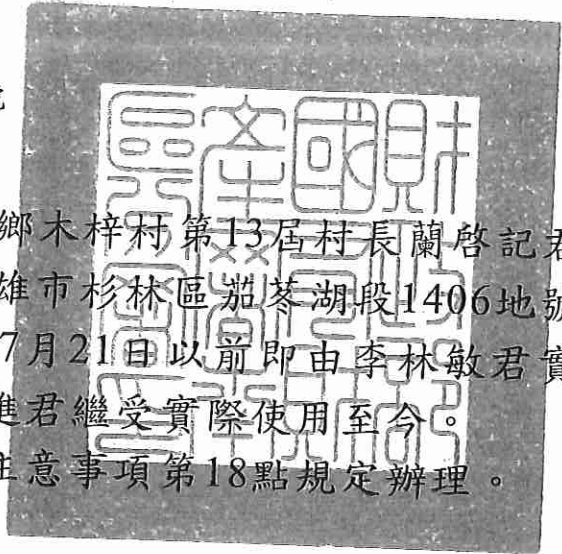 鄉木梓村第13屆村長蘭啓記君
雄市杉林區茄苳湖段1406地號
7月21日以前即由李林敏君實
進君繼受實際使用至今。
注意事項第18點規定辦理。